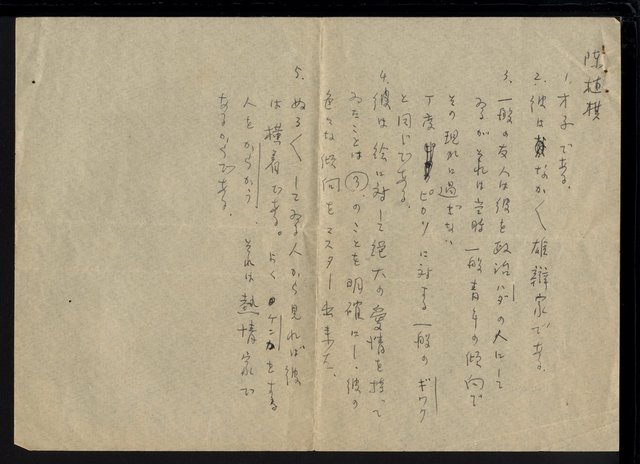 陳植棋
1. 才子である。
2. 彼はなか〱雄辯家である。
3. 一般の友人は彼を政治ハダの人にして
ゐるがそれは当時一般青年の傾向で
その現れに過ぎない
丁度 ピカソに対する一般のギワク
と同じである。
4. 彼は絵に対して絶大の愛情を持って
ゐたことは③のことを明確にし、彼の
色々な傾向をマスター出来た、
5. ぬる〱してゐる人から見れば彼
は横着である。よくケンカをする
人をからかう、それは熱情家で
あるからである。